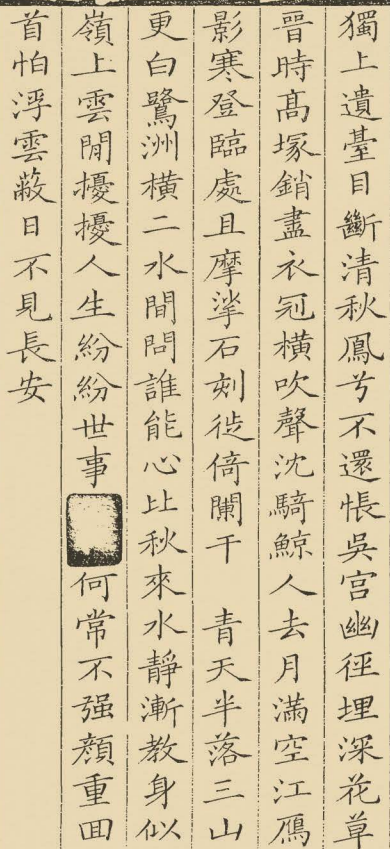 獨上遺臺目斷清秋鳳兮不還悵吳宫幽徑埋深花草
晉時髙塚銷盡衣冠橫吹聲沈騎鯨人去月滿空江鴈
影寒登臨處且摩挲石刻徙倚闌干　青天半落三山
更白鷺洲橫二水間問誰能心比秋來水靜漸教身似
嶺上雲閒擾擾人生紛紛世事何常不强顔重囬
首怕浮雲蔽日不見長安